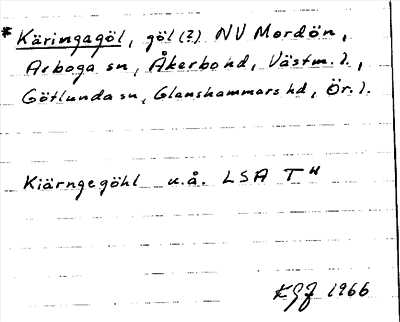 *Käringagöl, göl(?) NV Mordön,
Arboga sn, Åkerbo hd, Västm. l.,
Götlunda sn, Glanshammars hd, Ör. l.
Kiärngegöhl u.å. LSA T"
KGJ 1966